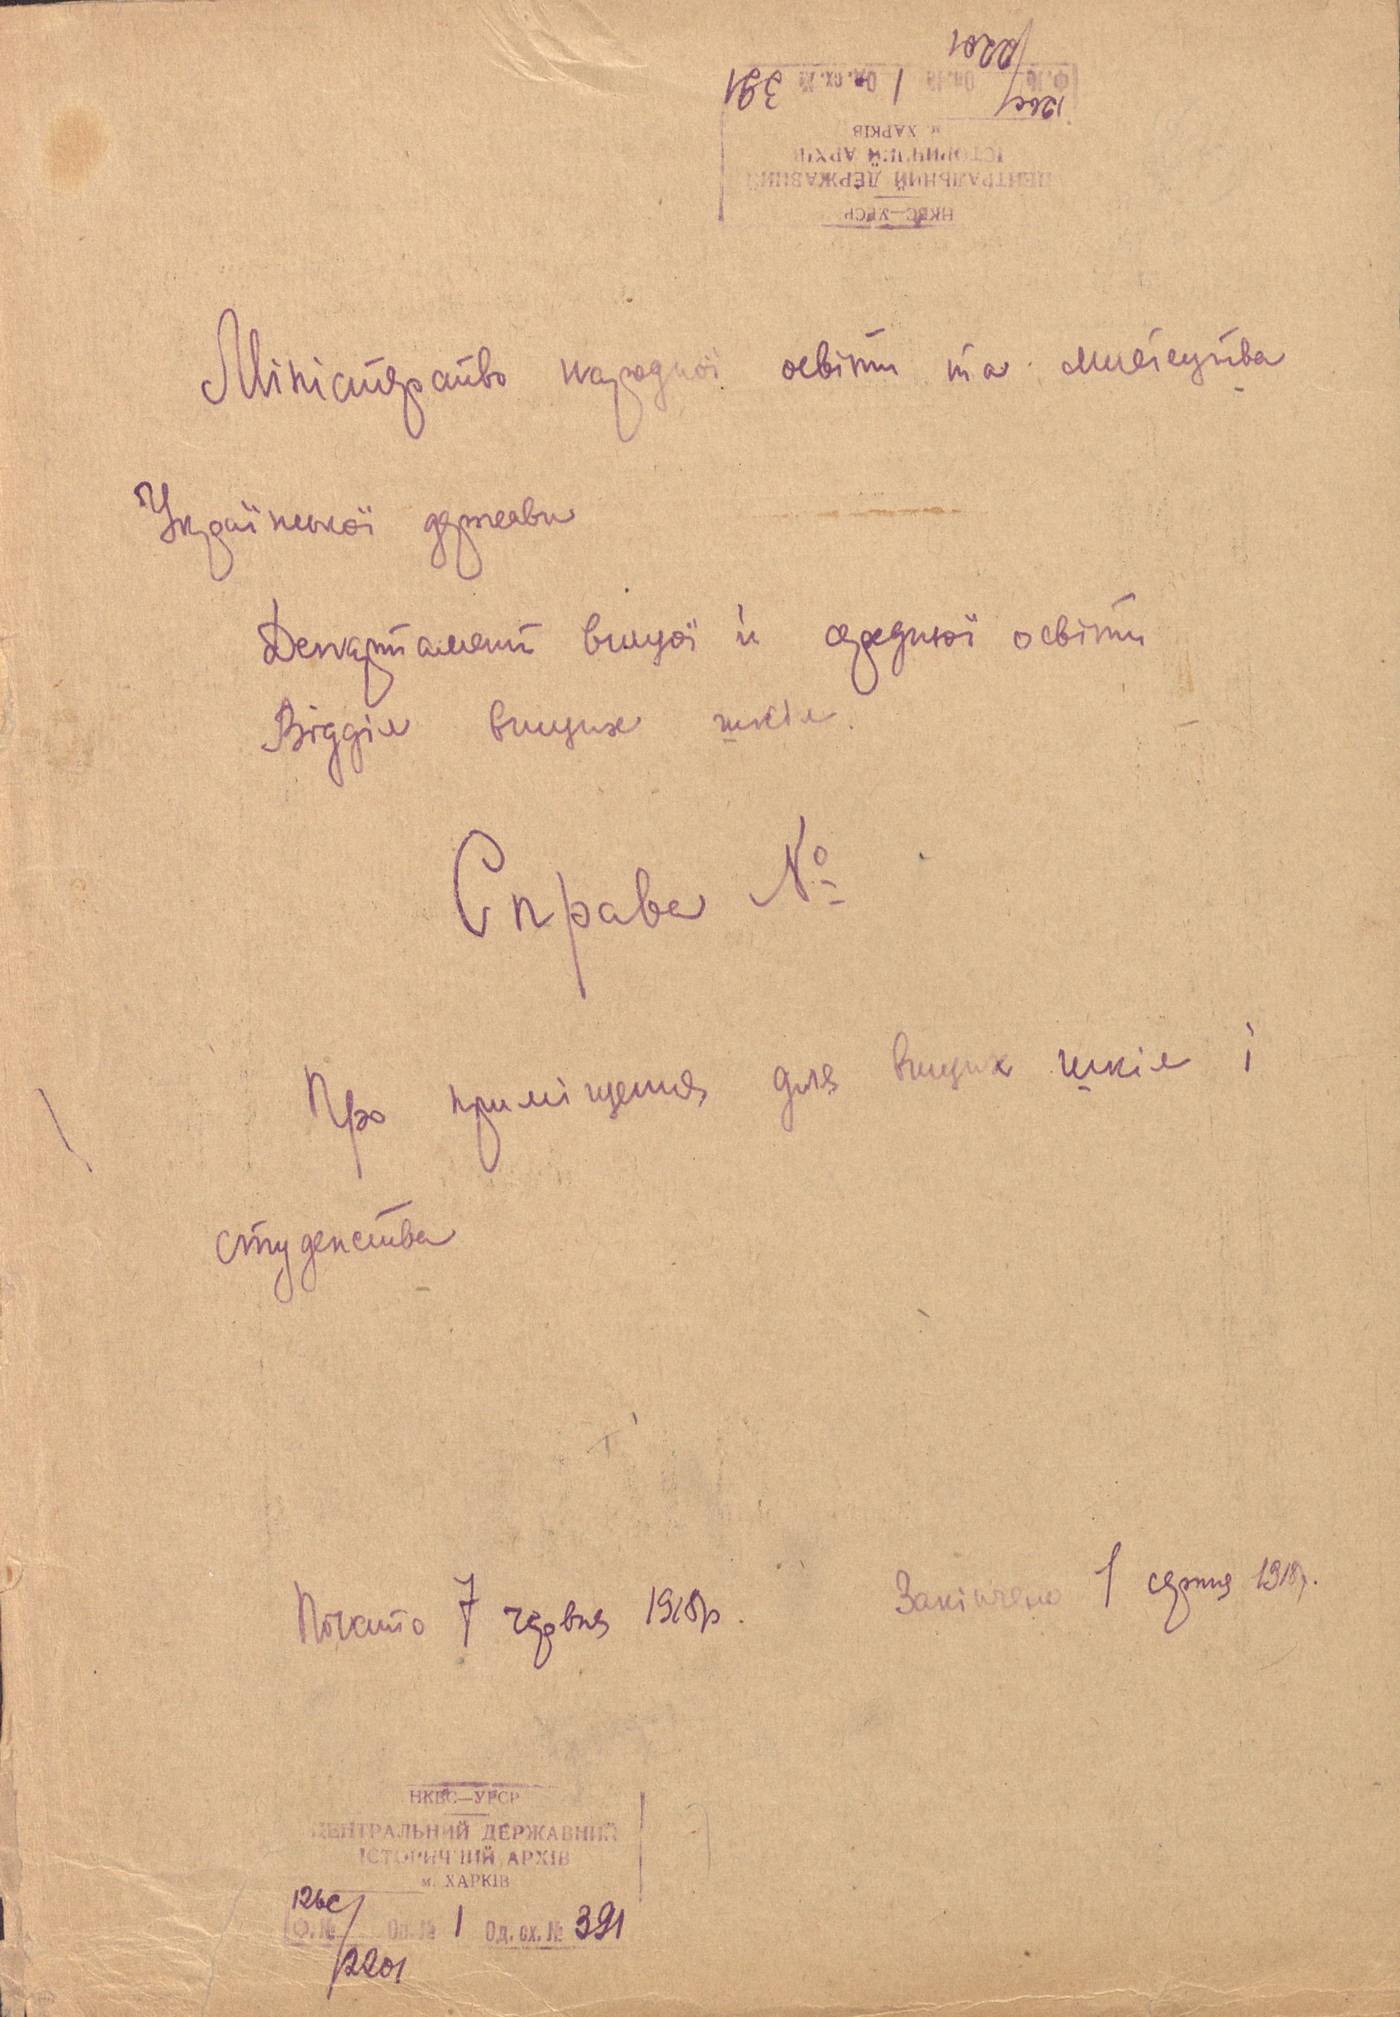 НКВС—УРСР
ЦЕНТРАЛЬНИЙ ДЕРЖАВНИЙ
ІСТОРИЧНИЙ АРХІВ
м. ХАРКІВ
Ф. № 2201 Оп. № 1 Од. сх. № 391
Міністерство народної освіти та мистецтва
Української держави
Департамент вищої й середньої освіти
Відділ вищих шкіл.
Справа №
Про приміщення для вищих шкіл і
студенства
Почато 7 червня 1918р. Закінчено 1 серпня 1918р.
НКВС—УРСР
ЦЕНТРАЛЬНИЙ ДЕРЖАВНИЙ
ІСТОРИЧНИЙ АРХІВ
м. ХАРКІВ
Ф. № 2201 Оп. № 1 Од. сх. № 391